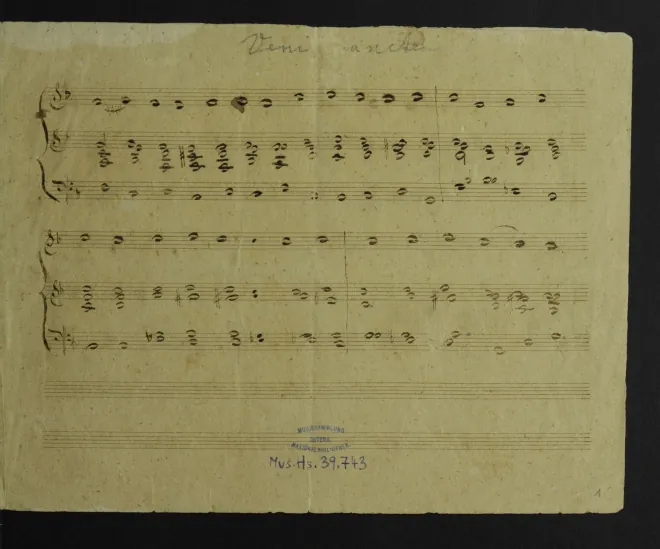 Veni sancte
MUSIKSAMMLUNG
ÖSTERR.
NATIONALBIBLIOTHEK
Mus.Hs.39.743
1